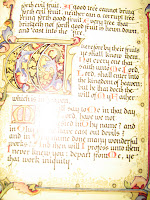 forth evil fruit. A good tree cannot bring
forth evil fruit, neither can a corrupt tree
bring forth good fruit. Every tree that
bringeth not forth good fruit is hewn down
and cast into the fire.
by their fruits
ye shall know them.
Not every one that
saith unto me,
Lord, shall enter into
the kingdom of heaven;
but he that doeth the
will of my Father
which is in heaven.
to me in that day,
Lord, have we not
in thy name? and
in thy name have cast out devils?
And then will I profess unto them
I never knew you: depart from me, ye
that work iniquity.